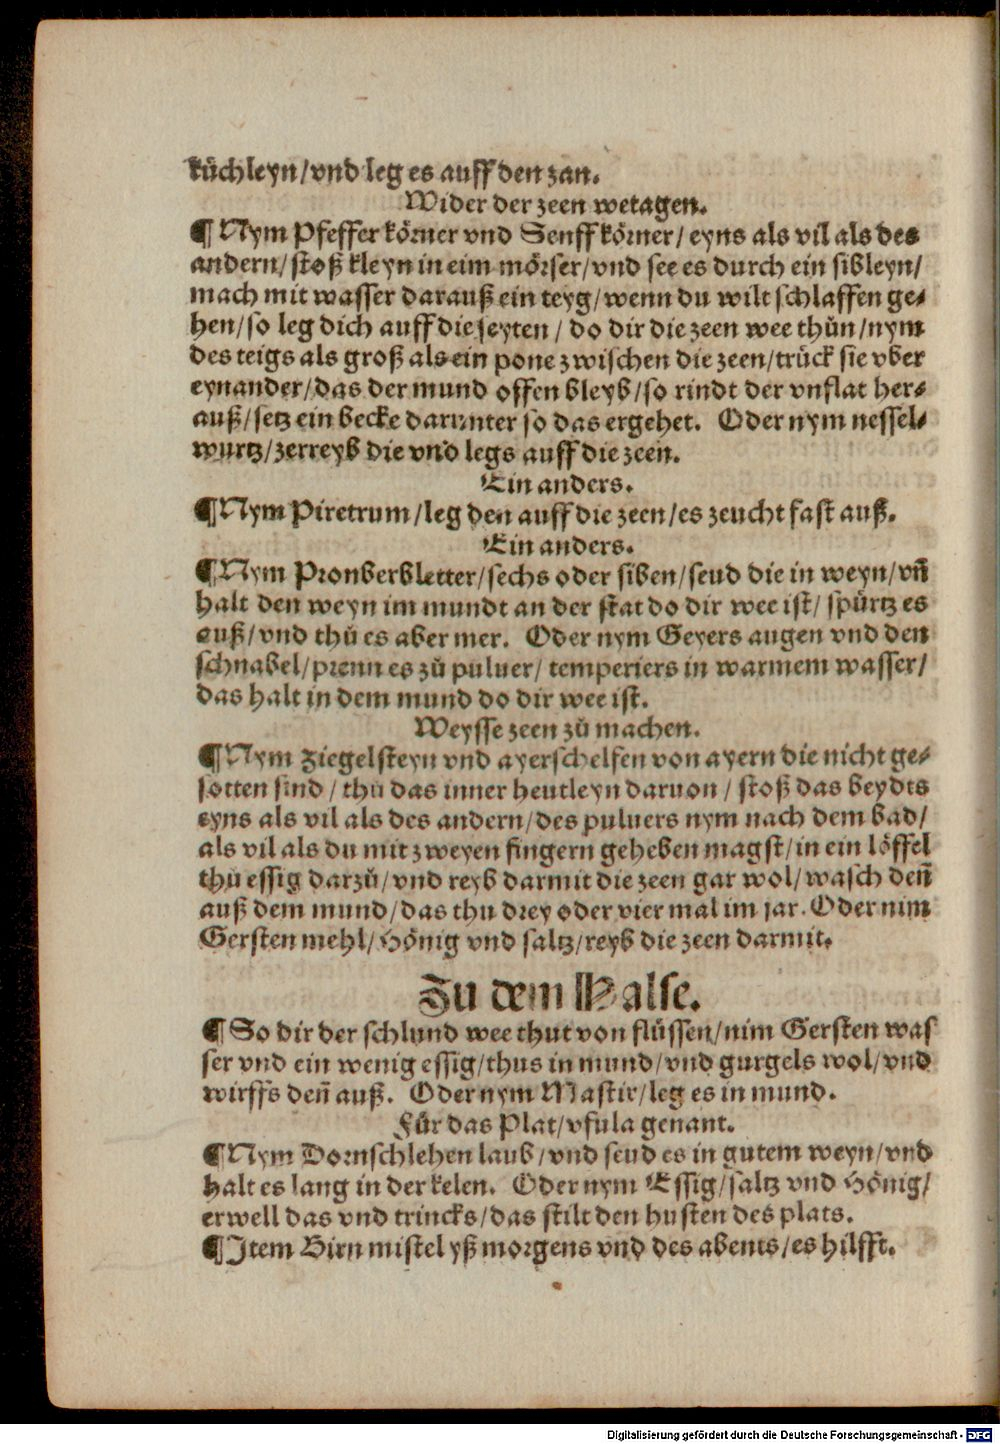 küchleyn/vnd leg es auff den zan.
Wider der zeen wetagen.
¶ Nym Pfefferkörner vnd Senffkörner/ eyns als vil als des
andern/ stoß kleyn in eim mörser/vnd see es durch ein sibleyn/
mach mit wasser darauß ein teyg/wenn du wilt schlaffen ge-
hen/so leg dich auff die seyten/ do dir die zeen wee thůn/nym
des teigs als groß als ein pone zwischen die zeen/trück sie vber
eynander/das der mund offen bleyb/so rindt der vnflat her-
auß/setz ein becke darunter so das ergehet. Oder nym nessel-
wurtz/zerreyb die vnd legs auff die zeen.
Ein anders.
¶ Nym Piretrum/leg den auff die zeen/es zeucht fast auß.
Ein anders.
¶ Nym Pronberbletter/sechs oder siben/seud die in weyn/vñ
halt den weyn im mundt an der stat do dir wee ist/ spürtz es
auß/vnd thů es aber mer. Oder nym Geyers augen vnd den
schnabel/prenn es zů puluer/ temperiers in warmem wasser/
das halt in dem mund do dir wee ist.
Weysse zeen zů machen.
¶ Nym Ziegelsteyn vnd ayerschelfen von ayern die nicht ge-
sotten sind/ thů das inner heutleyn daruon/ stoß das beydts
eyns als vil als des andern/des puluers nym nach dem bad/
als vil als du mit zweyen fingern geheben magst/in ein löffel
thů essig darzů/vnd reyb darmit die zeen gar wol/wasch deñ
auß dem mund/das thu drey oder vier mal im jar. Oder nim
Gersten mehl/Hönig vnd saltz/reyb die zeen darmit.
Zu dem Halse.
¶ So dir der schlund wee thut von flüssen/nim Gersten was
ser vnd ein wenig essig/thus in mund/vnd gurgels wol/vnd
wirffs deñ auß. Oder nym Mastix/leg es in mund.
Für das Plat/vfula genant.
¶ Nym Dornschlehen laub/vnd seud es in gutem weyn/vnd
halt es lang in der kelen. Oder nym Essig/saltz vnd Hönig/
erwell das vnd trincks/das stilt den husten des plats.
¶ Item Birn mistel yß morgens vnd des abents/es hilfft.
Digitalisierung gefördert durch die Deutsche Forschungsgemeinschaft - DFG